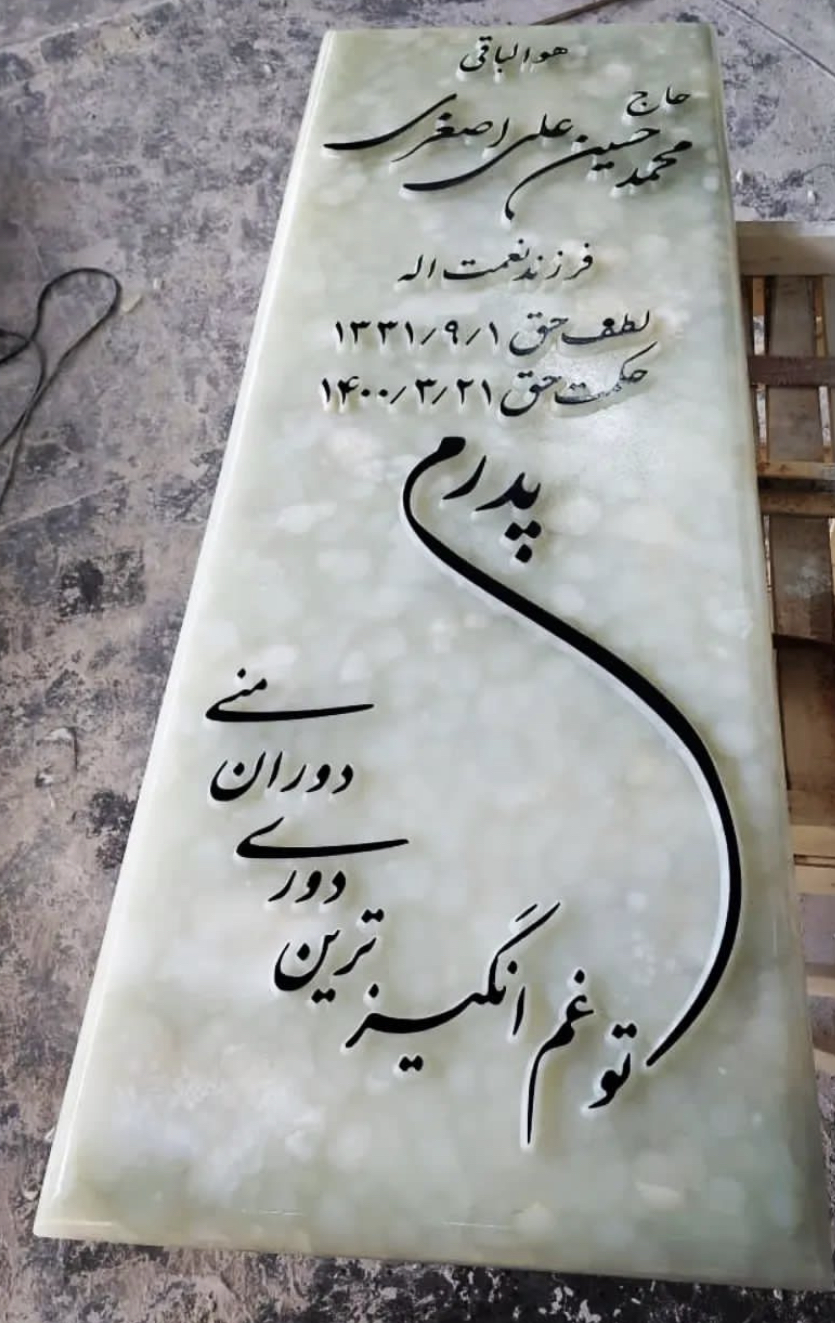 هوالباقی
حاج
محمد حسین علی اصغری
فرزند نعمت اله
لطف حق ۱۳۳۱/۹/۱
حکمت حق ۱۴۰۰/۳/۲۱
پدرم
تو غم انگیز
ترین
دوری
دوران
منی